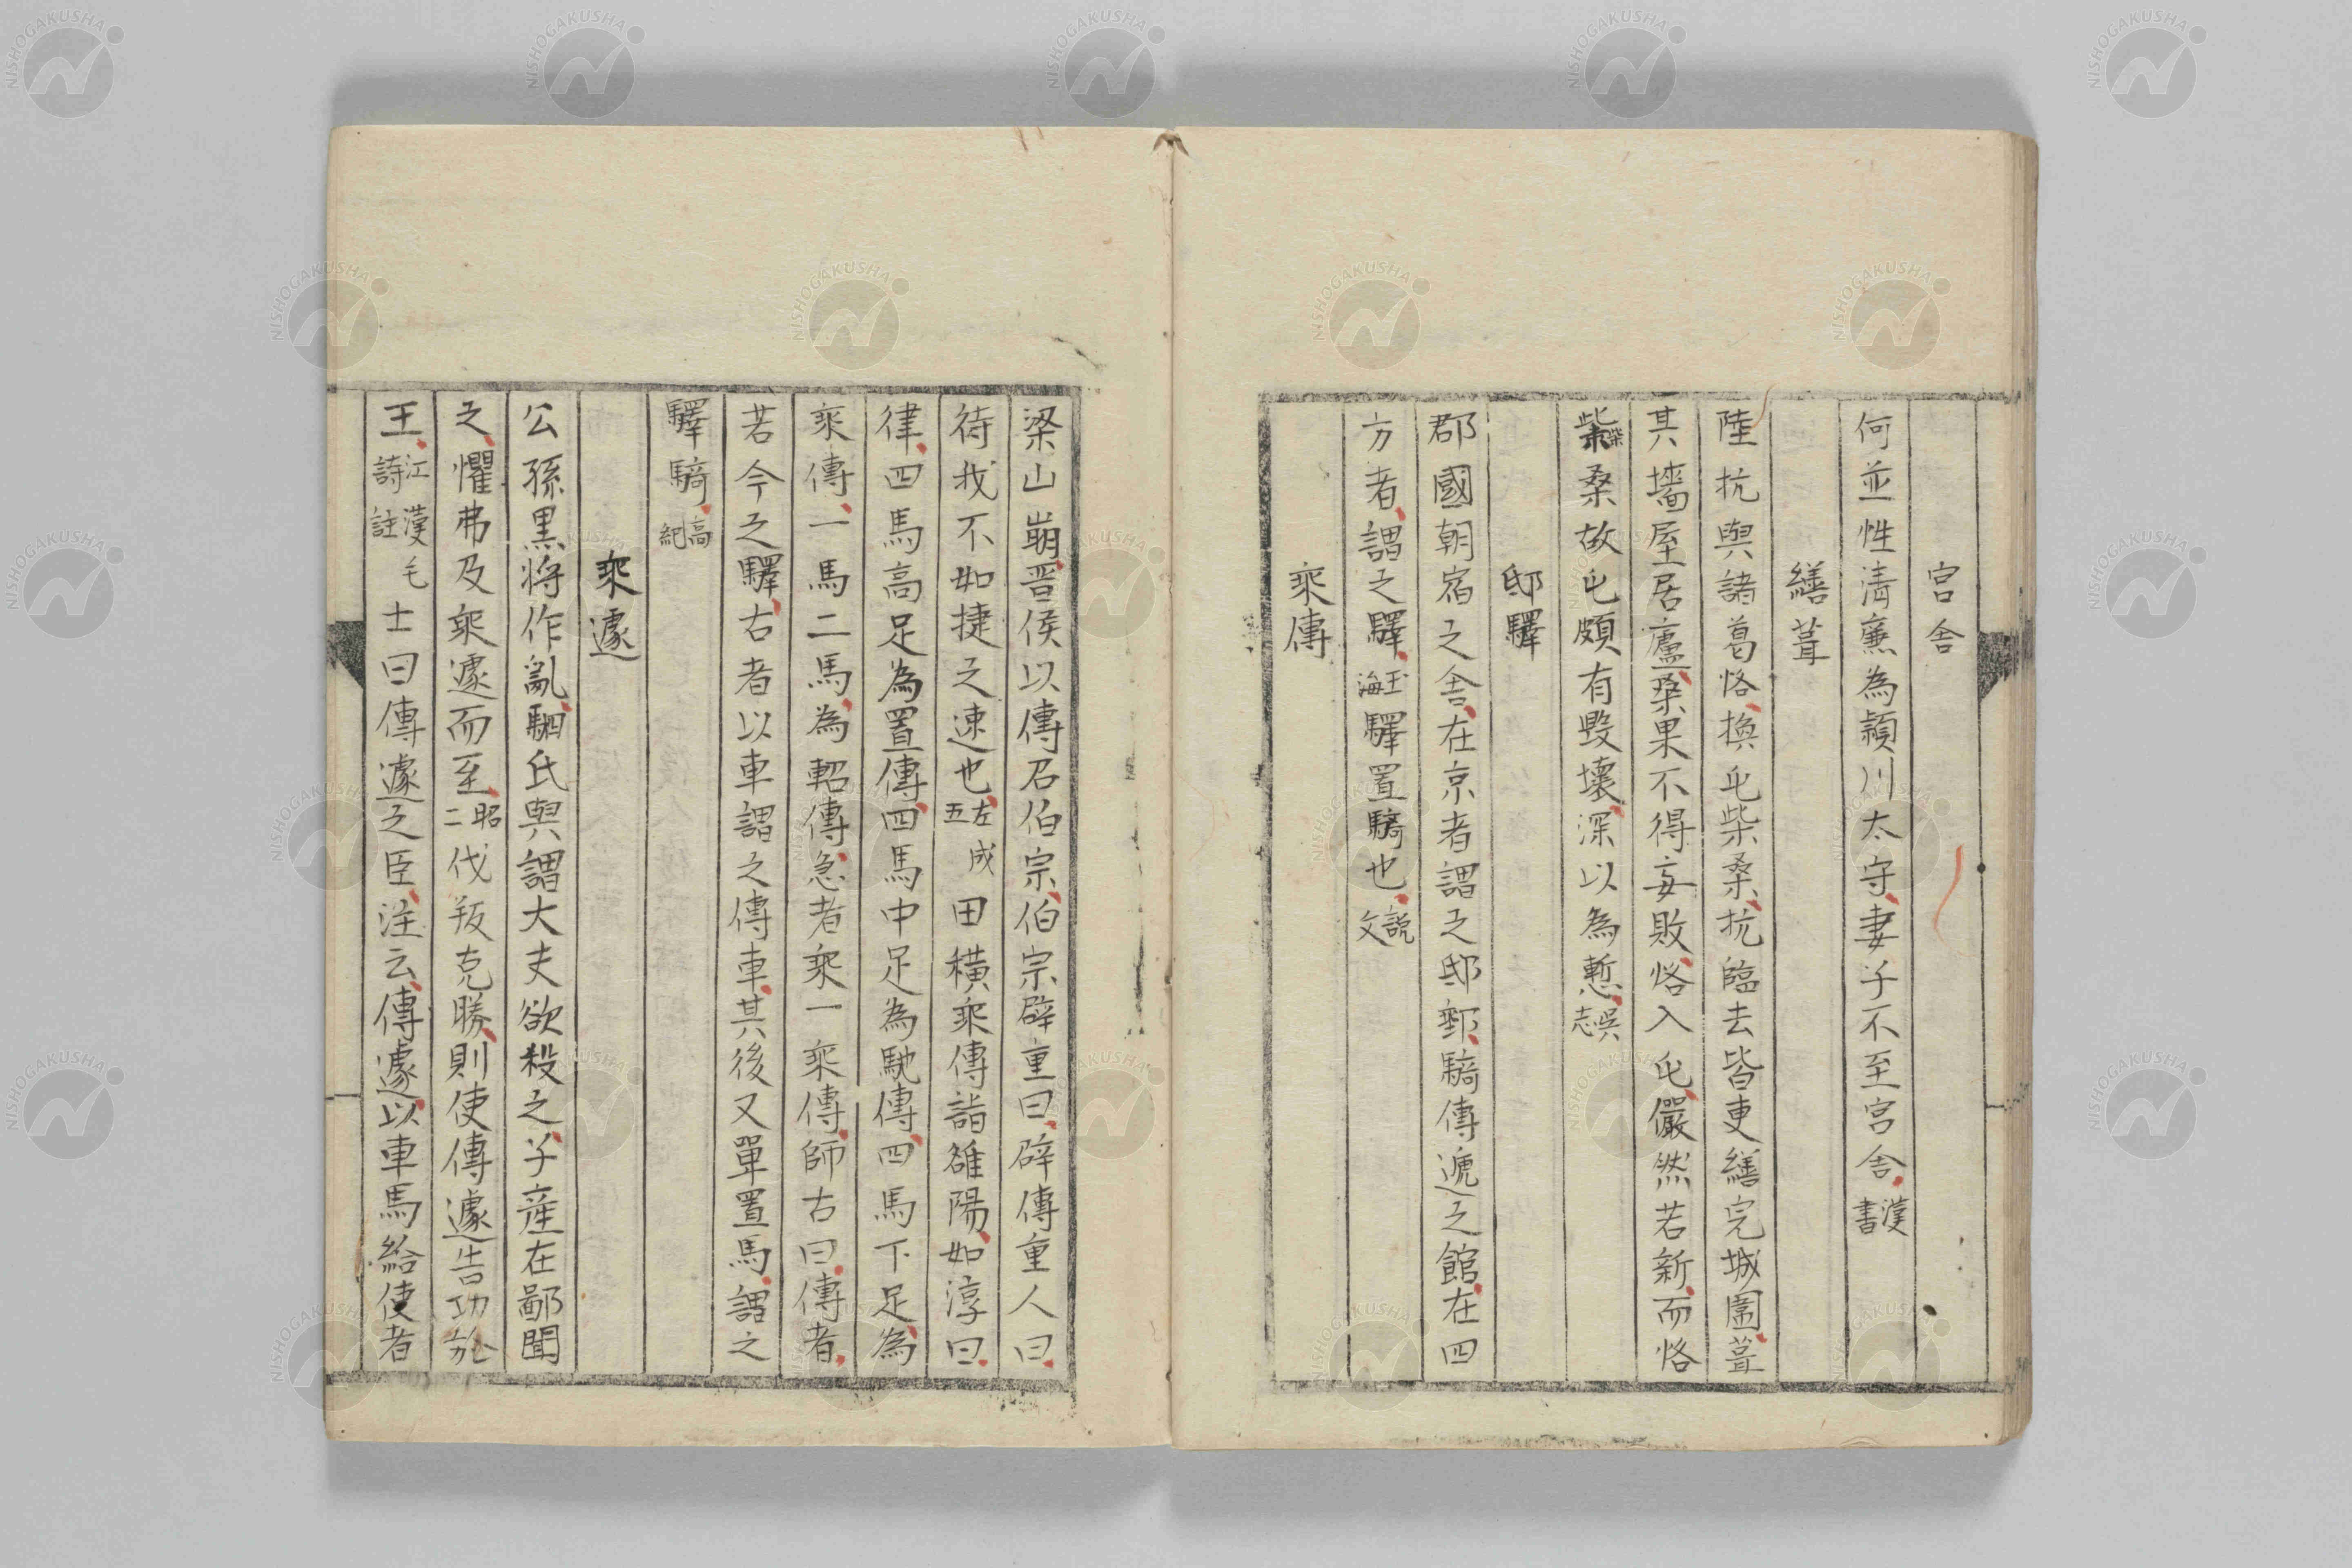 宮舍
何並性淸廉為潁川太守妻子不至宮舍漢書
繕葺
陸抗與諸葛恪換屯柴桑抗臨去皆更繕完城圍葺
其墻屋居廬桑果不得妄敗恪入屯儼然若新而恪
柴桑故屯頗有毀壞深以為慙吳志
邸驛
郡國朝宿之舍在京者謂之邸郵騎傳遞之館在四
方者謂之驛玉海驛置騎也說文
乘傳
梁山崩晋侯以傳召伯宗伯宗辟重曰辟傳重人曰
待我不如捷之速也左成五田橫乘傳詣雒陽如淳曰
律四馬高足為置傳四馬中足為馳傳四馬下足為
乘傳一馬二馬為軺傳急者乘一乘傳師古曰傳者
若今之驛古者以車謂之傳車其後又單置馬謂之
驛騎高紀
乘遽
公孫黑將作亂駟氏與謂大夫欲殺之子産在鄙聞
之懼弗及乘遽而至昭二伐叛克勝則使傳遽告功於
王江漢毛詩註士曰傳遽之臣注云傳遽以車馬給使者
NISHOGAKUSHA